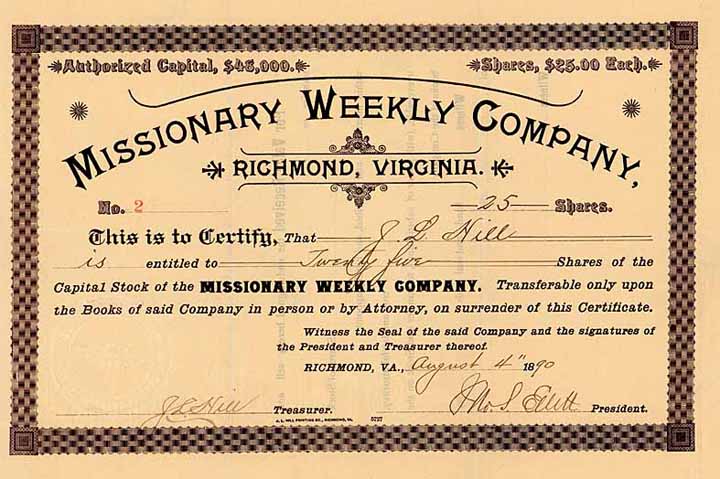 Authorized Capital, $46,000.
Shares, $25.00 Each.
MISSIONARY WEEKLY COMPANY,
RICHMOND, VIRGINIA.
No. 2
25 Shares.
This is to Certify, That J. L. Hill
is entitled to Twenty five Shares of the
Capital Stock of the MISSIONARY WEEKLY COMPANY. Transferable only upon
the Books of said Company in person or by Attorney, on surrender of this Certificate.
Witness the Seal of the said Company and the signatures of
the President and Treasurer thereof.
RICHMOND, VA., August 4" 1890
J L Hill Treasurer.
Jno. S. Ellett President.
J. L. HILL PRINTING CO., RICHMOND, VA.